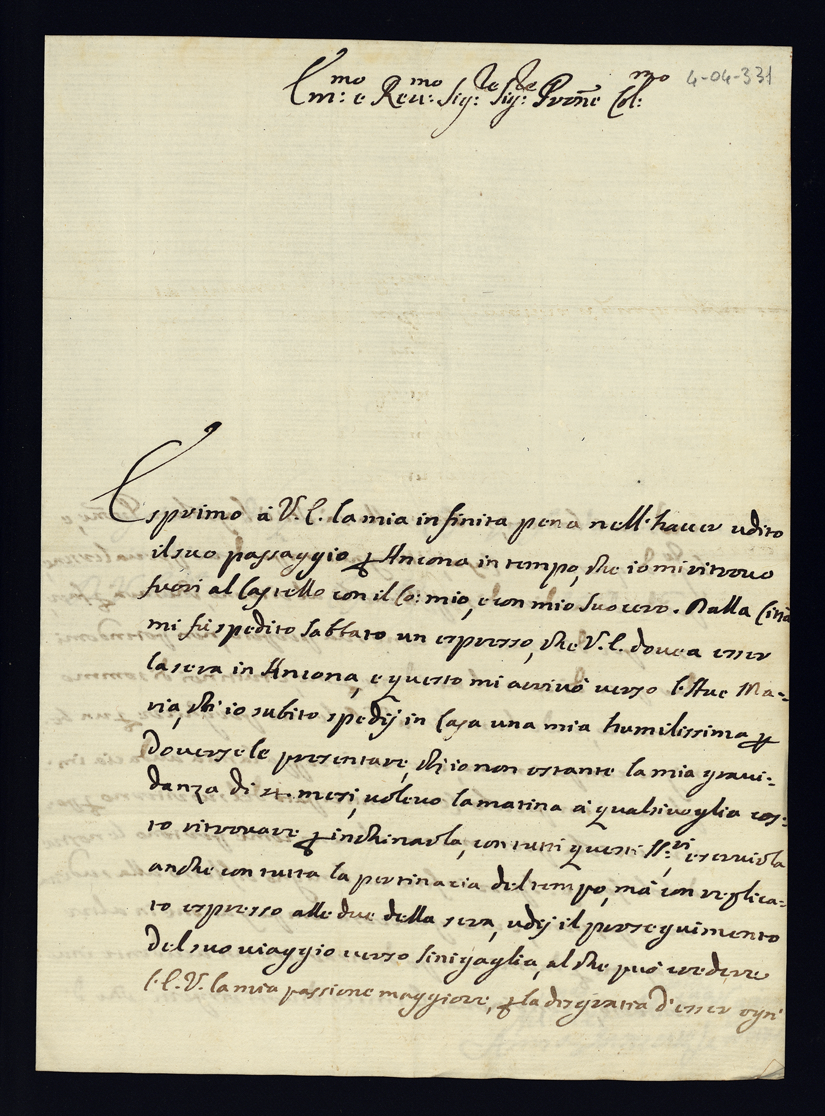 4-04-331
Em:mo e Reu:mo Sig:re Sig:re Pron̄e Col:mo
Esprimo à V. E. la mia infinita pena nell'hauer udito
il suo passaggio ꝑ Ancona in tempo, che io mi ritrouo
fuori al Castello con il Co: mio, e con mio suocero. Dalla Città
mi fù spedito Sabbato un espresso, che V. E. douea esser
la sera in Ancona, e questo mi arriuò uerso l'Aue Ma-
ria, ch'io subito spedij in Casa una mia humilissima ꝑ
douersele presentare, ch'io non ostante la mia graui-
danza di mesi, uoleuo la matina à qualsiuoglia cos-
to ritrouare ꝑ inchinarla, con tutti questi SS:ri e seruirla
anche con tutta la pertinacia del tempo, mà con replica-
to espresso alle due della sera, udij il proseguimento
del suo uiaggio uerso Sinigaglia, al che può credere
l'E. V. la mia passione maggiore, ꝑ la disgratia d'esser ogn'